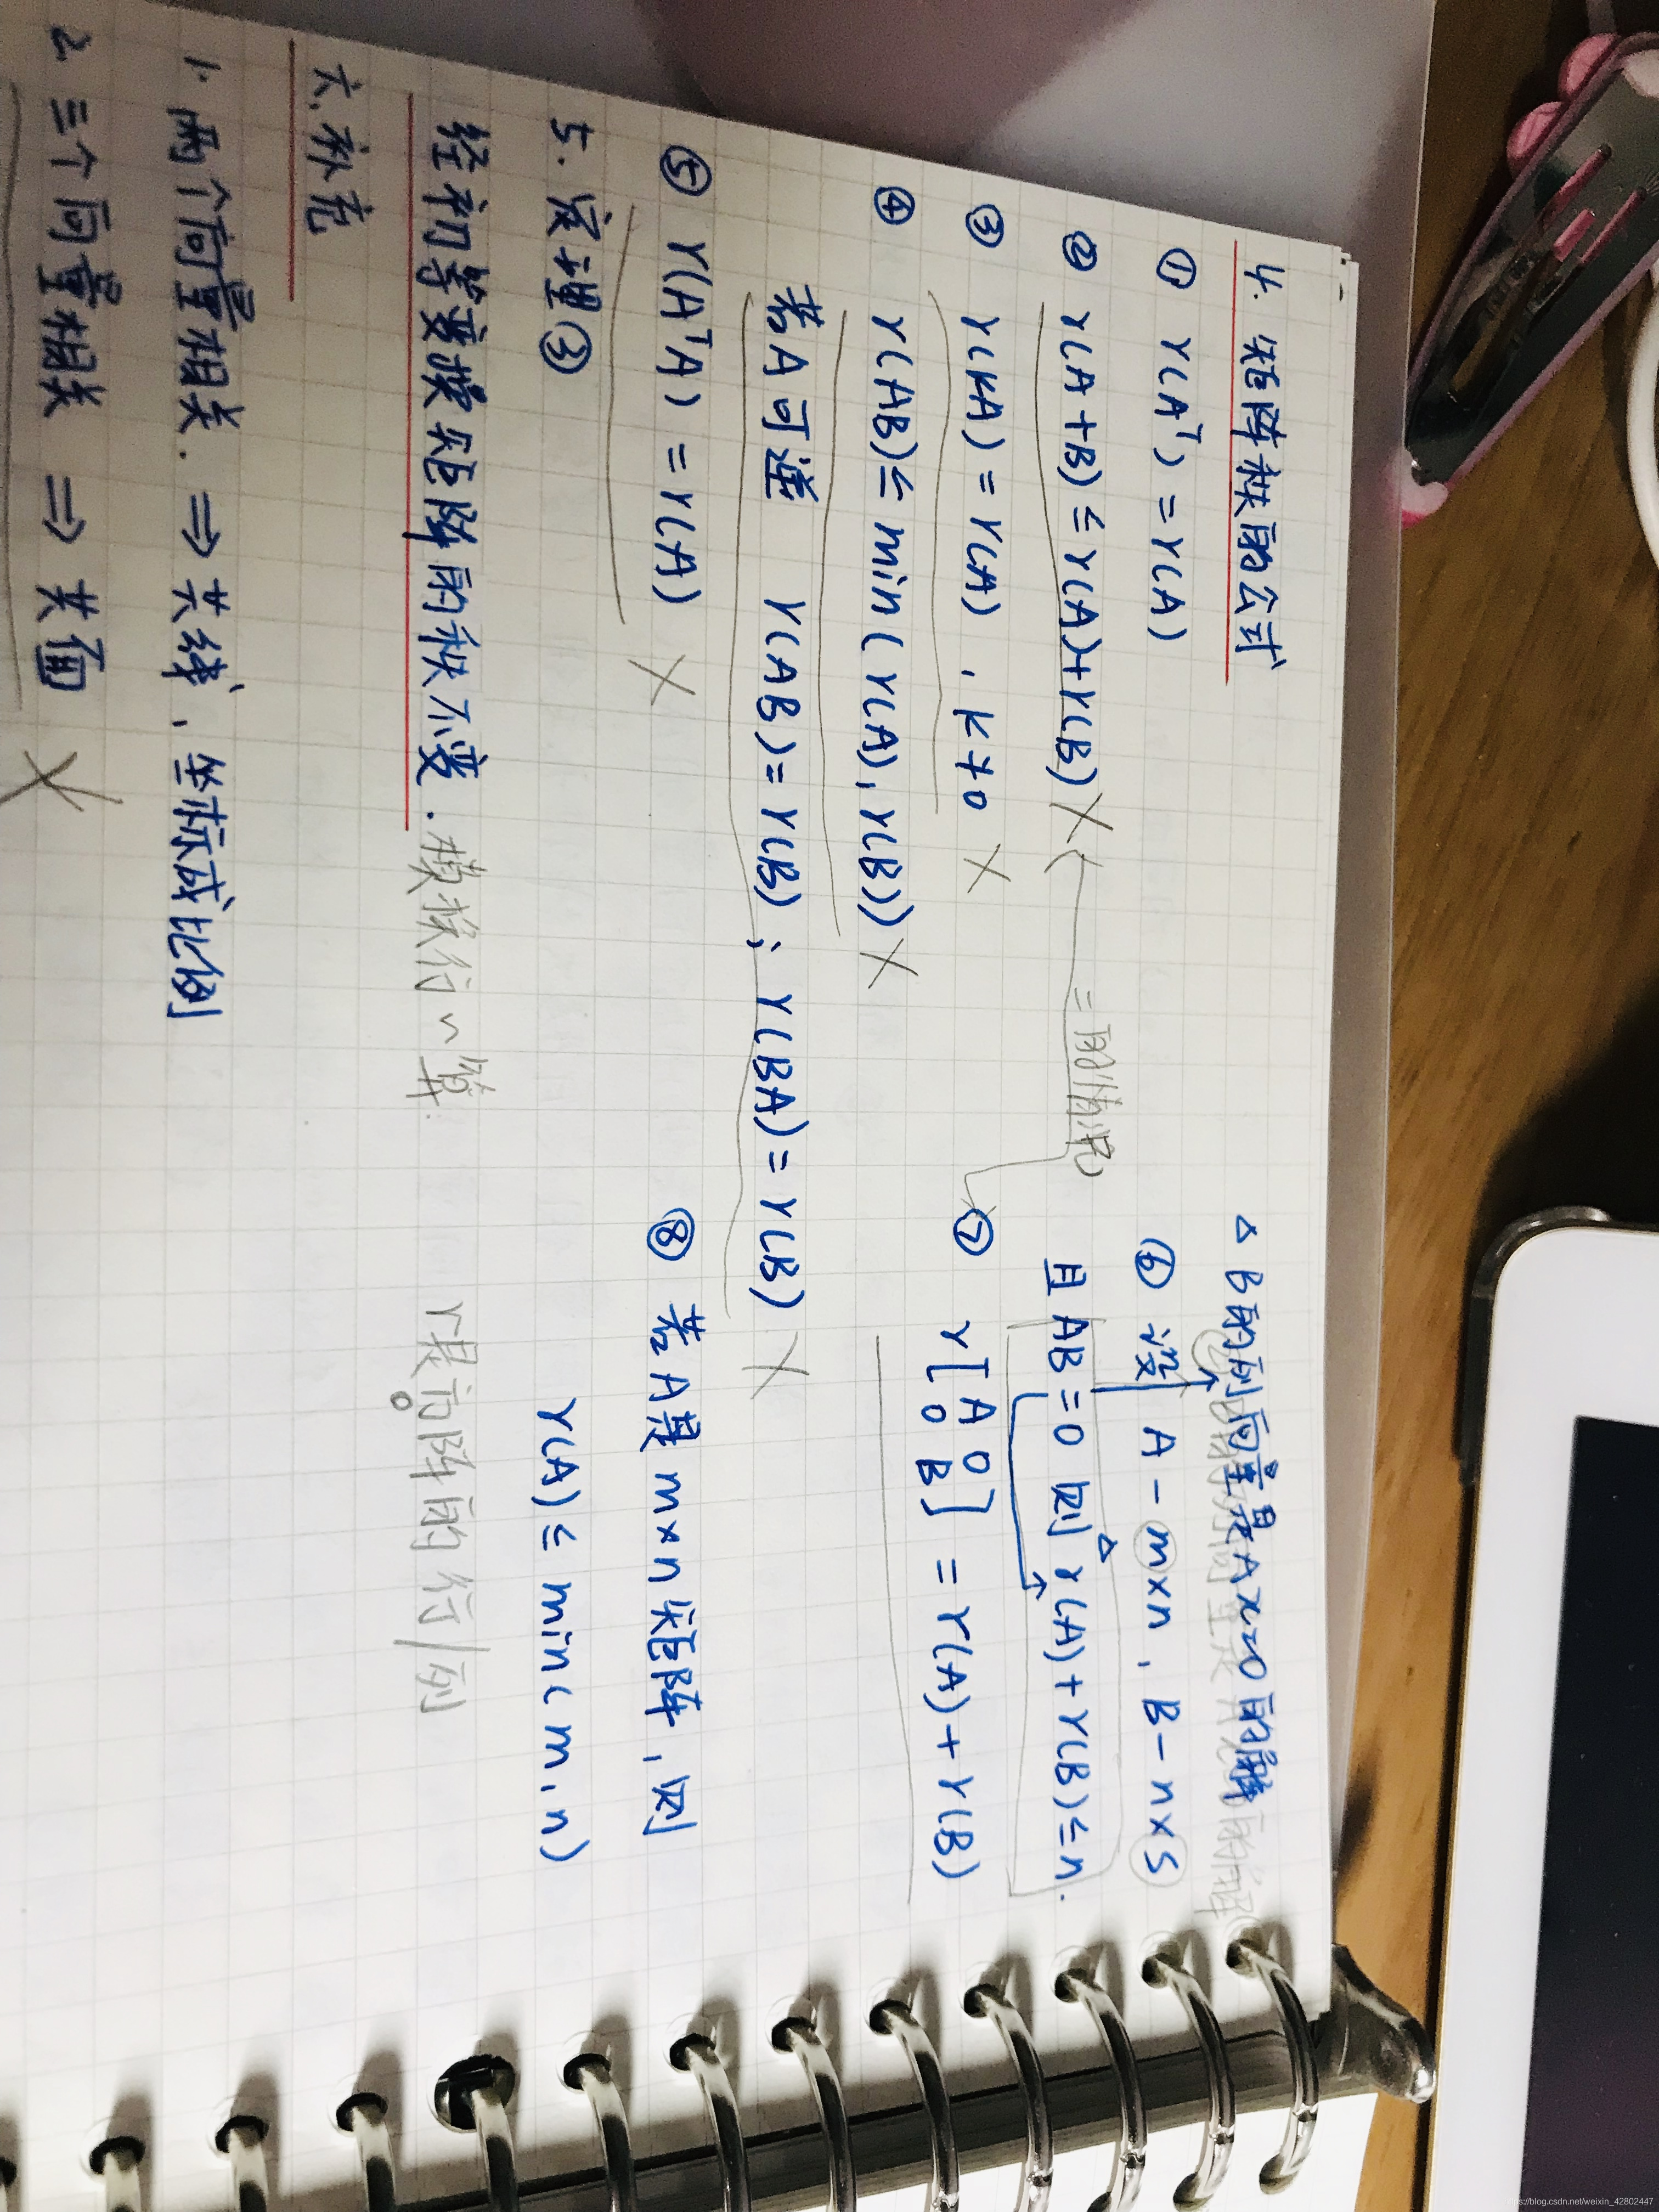 4. 矩阵秩的公式
① r(Aᵀ) = r(A)
② r(A+B) ≤ r(A)+r(B) ×
③ r(kA) = r(A) , k≠0 ×
④ r(AB) ≤ min ( r(A), r(B)) ×
若A可逆 r(AB) = r(B) ; r(BA) = r(B) ×
⑤ r(AᵀA) = r(A) ×
△ B的列向量是Ax=0的解
⑥ 设 A - m×n , B - n×s
且 AB = 0 则 r(A) + r(B) ≤ n.
=的情况
⑦ r[ A 0
0 B ] = r(A) + r(B)
⑧ 若A是 m×n 矩阵 , 则
r(A) ≤ min ( m , n )
5. 定理③
经初等变换矩阵的秩不变.
r是 阵的行/列
六. 补充
1. 两个向量相关. ⇒ 共线 , 坐标成比例
2. 三个向量相关 ⇒ 共面 ×
https://blog.csdn.net/weixin_42802447